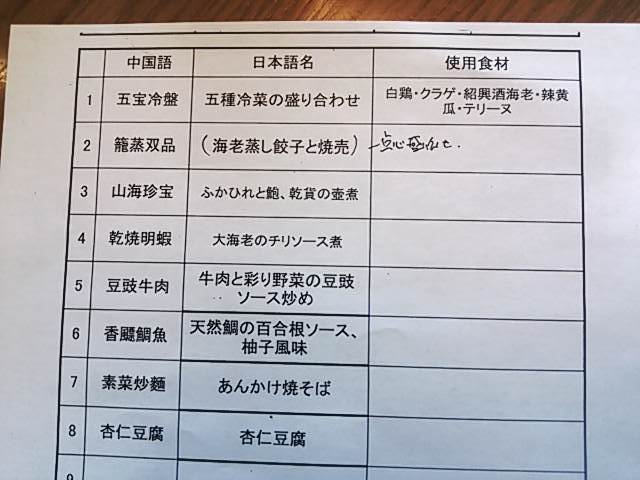 中国語 日本語名 使用食材
1 五宝冷盤 五種冷菜の盛り合わせ 白鶏・クラゲ・紹興酒海老・辣黄
瓜・テリーヌ
2 籠蒸双品 (海老蒸し餃子と焼売) 点心盛合せ.
3 山海珍宝 ふかひれと鮑、乾貨の壺煮
4 乾焼明蝦 大海老のチリソース煮
5 豆豉牛肉 牛肉と彩り野菜の豆豉
ソース炒め
6 香飄鯛魚 天然鯛の百合根ソース、
柚子風味
7 素菜炒麺 あんかけ焼そば
8 杏仁豆腐 杏仁豆腐